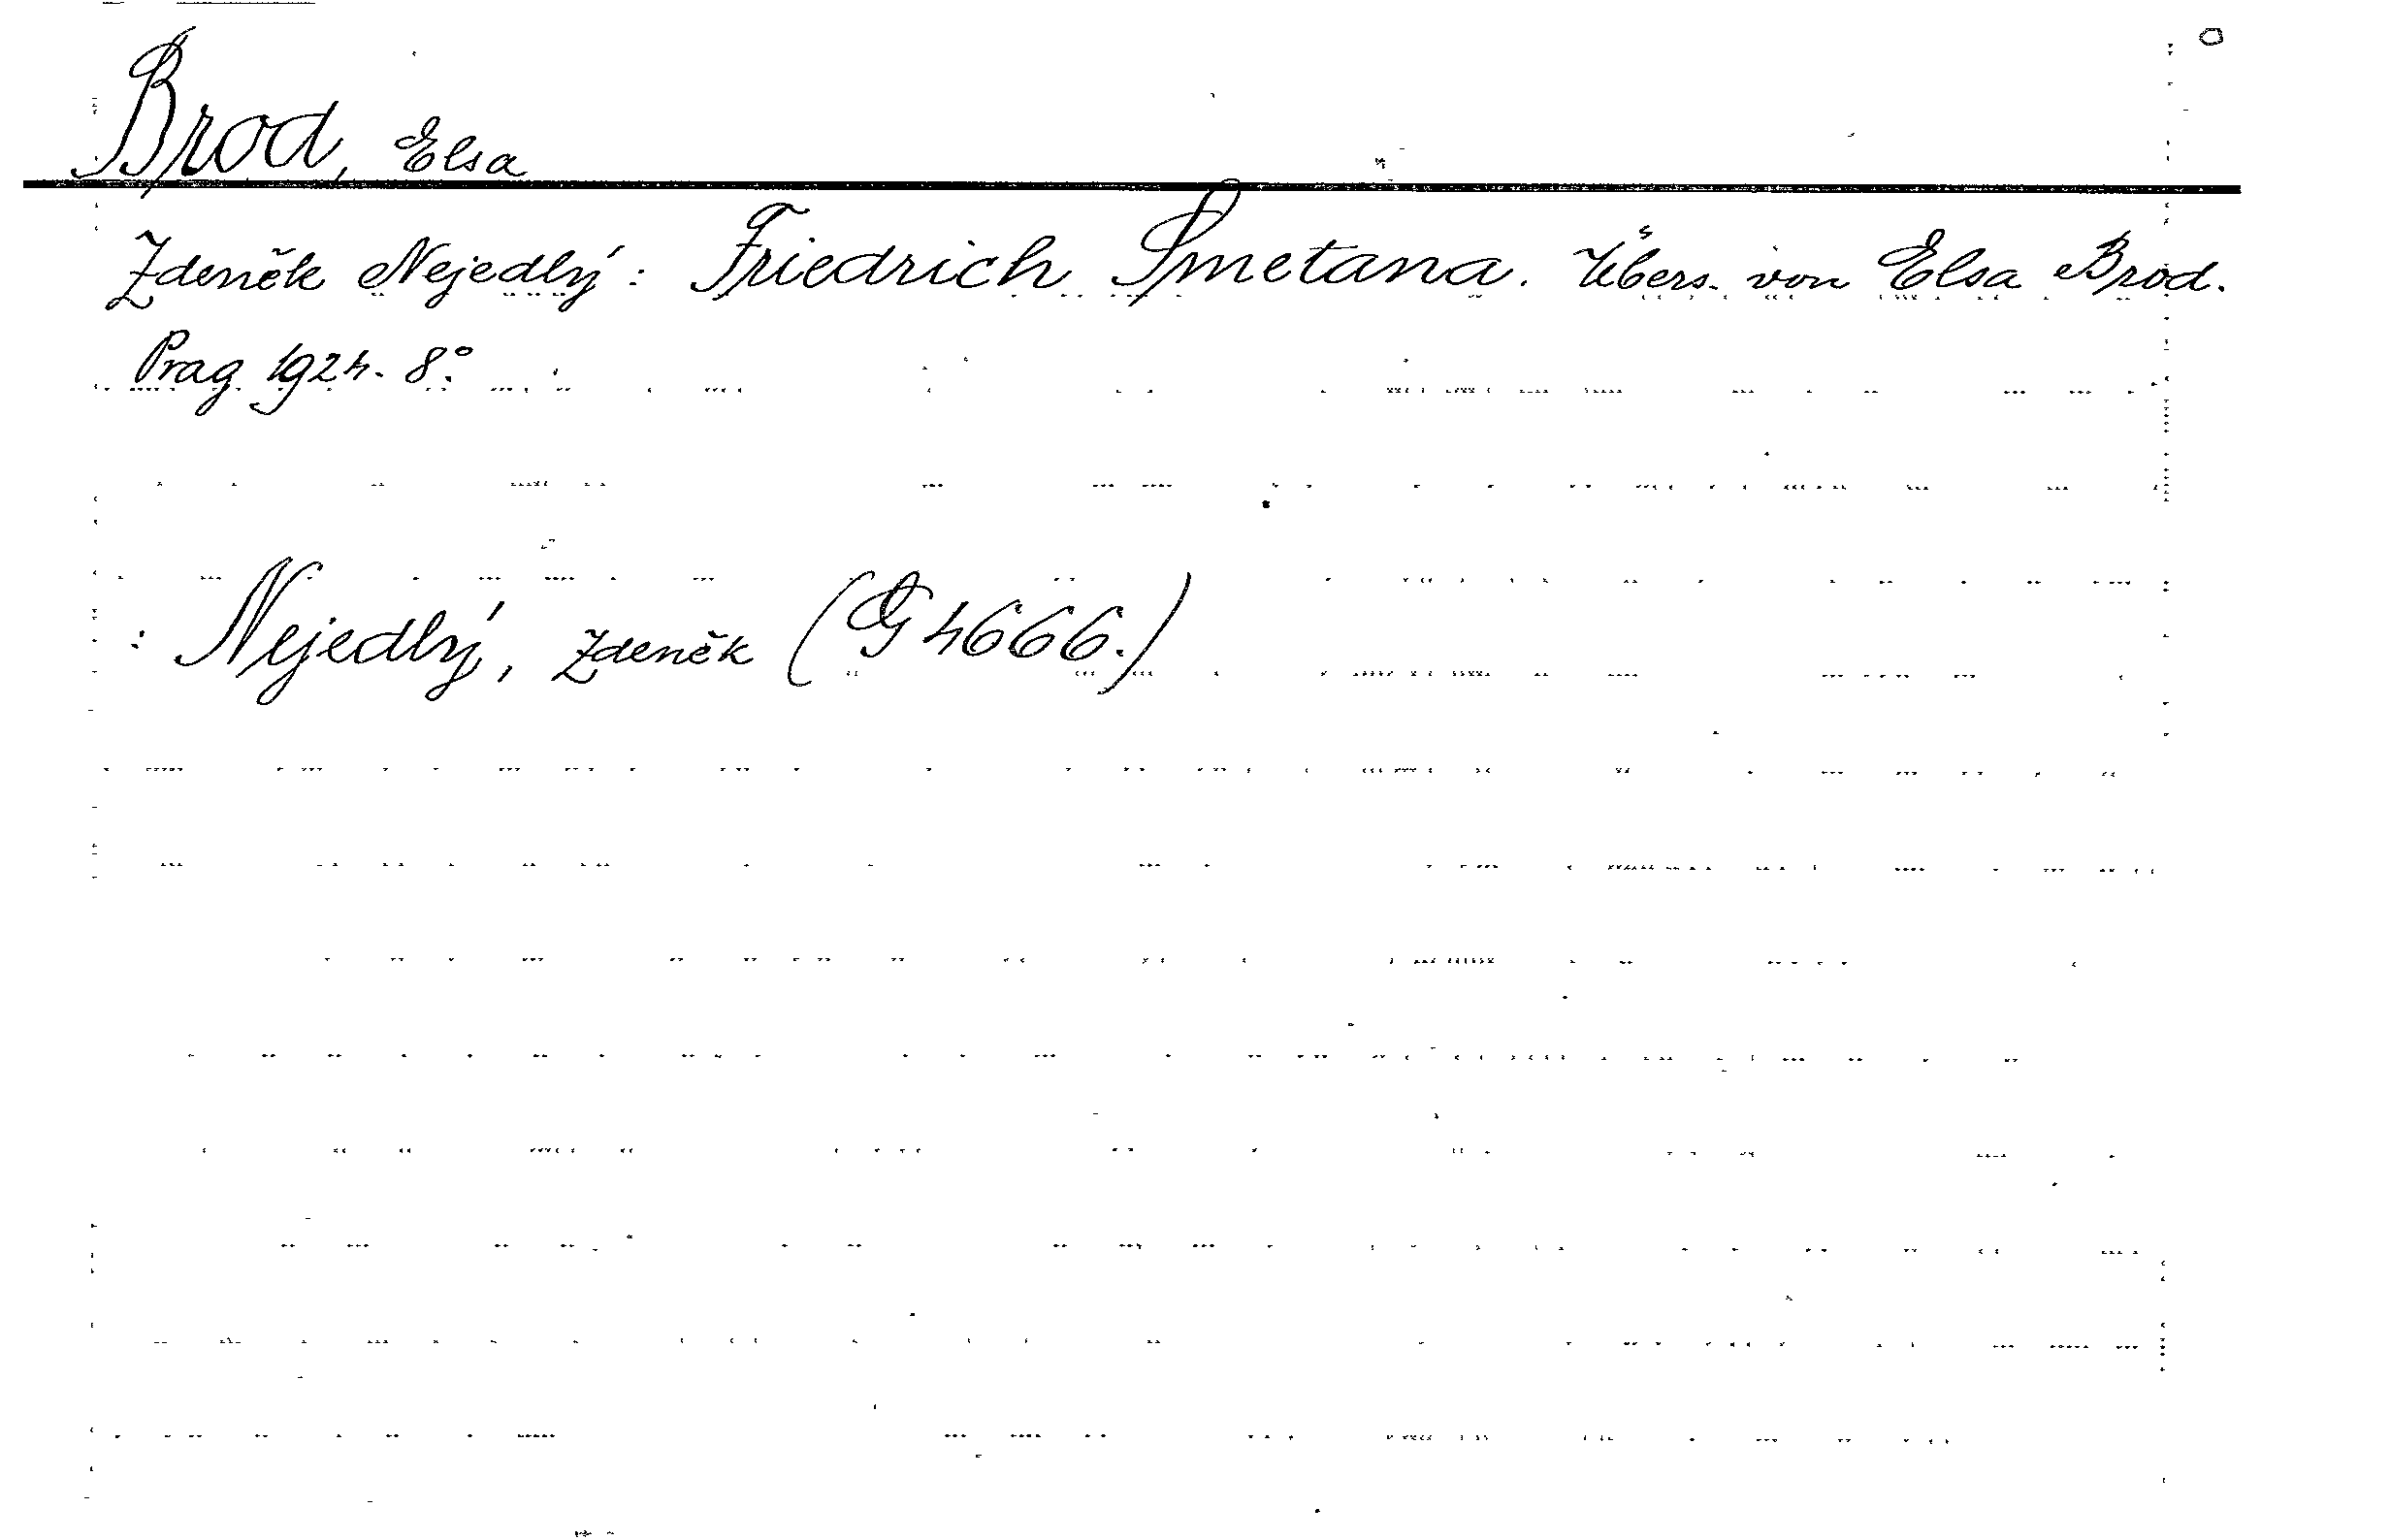 Brod, Elsa
Zdeněk Nejedlý: Friedrich Smetana. Übers. von Elsa Brod.
Prag 1924. 8°.
: Nejedlý, Zdeněk (G 4666.)